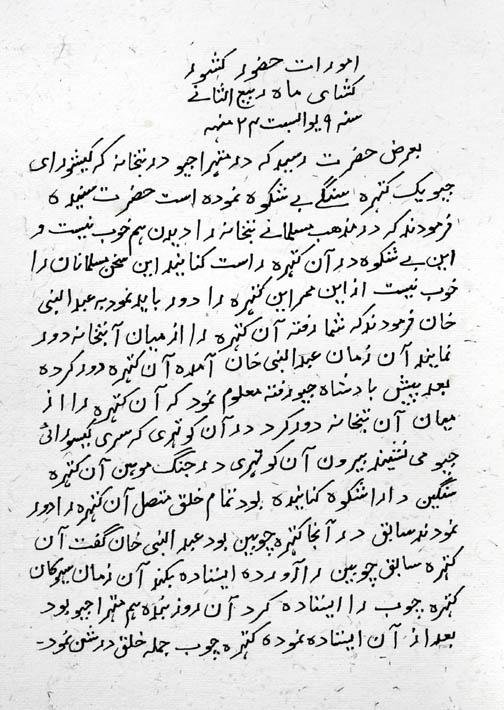 امورات حضور کشور
کشای ماه ربیع الثانے
سنه ۹ یوم السبت ۲۴
بعرض حضرت رسید که در متهرا جیو در بتخانه که کیشورای
جیو یک کتهره سنگے بے شکوه نموده است حضرت شنیده
فرمودند که در مذهب مسلمانے بتخانه را دیدن هم خوب نیست و
این بے شکوه در آن کتهره راست کنانیده این سخن مسلمانان را
خوب نیست از این ممر این کتهره را دور باید نمود به عبد النبی
خان فرمودند که شما رفته آن کتهره را از میان آن بتخانه دور
نمایند آن زمان عبد النبی خان آمده آن کتهره دور کرده
بعد پیش بادشاه جیو رفته معلوم نمود که آن کتهره را از
میان آن بتخانه دور کرد در آن کوتهری که سری کیسورائی
جیو می نشیند بیرون آن کوتهری در جنگ موہن آن کتهره
سنگین دارا شکوه کنانیده بود تمام خلق متصل آن کتهره را دور
نمودند سابق در آنجا کتهره چوبین بود عبد النبی خان گفت آن
کتهره سابق چوبین را آورده ایستاده بکنند آن زمان
کتهره چوب را ایستاده کرد آن روز بنده هم متهرا جیو بود
بعد از آن ایستاده نموده کتهره چوب جمله خلق درشن نمود